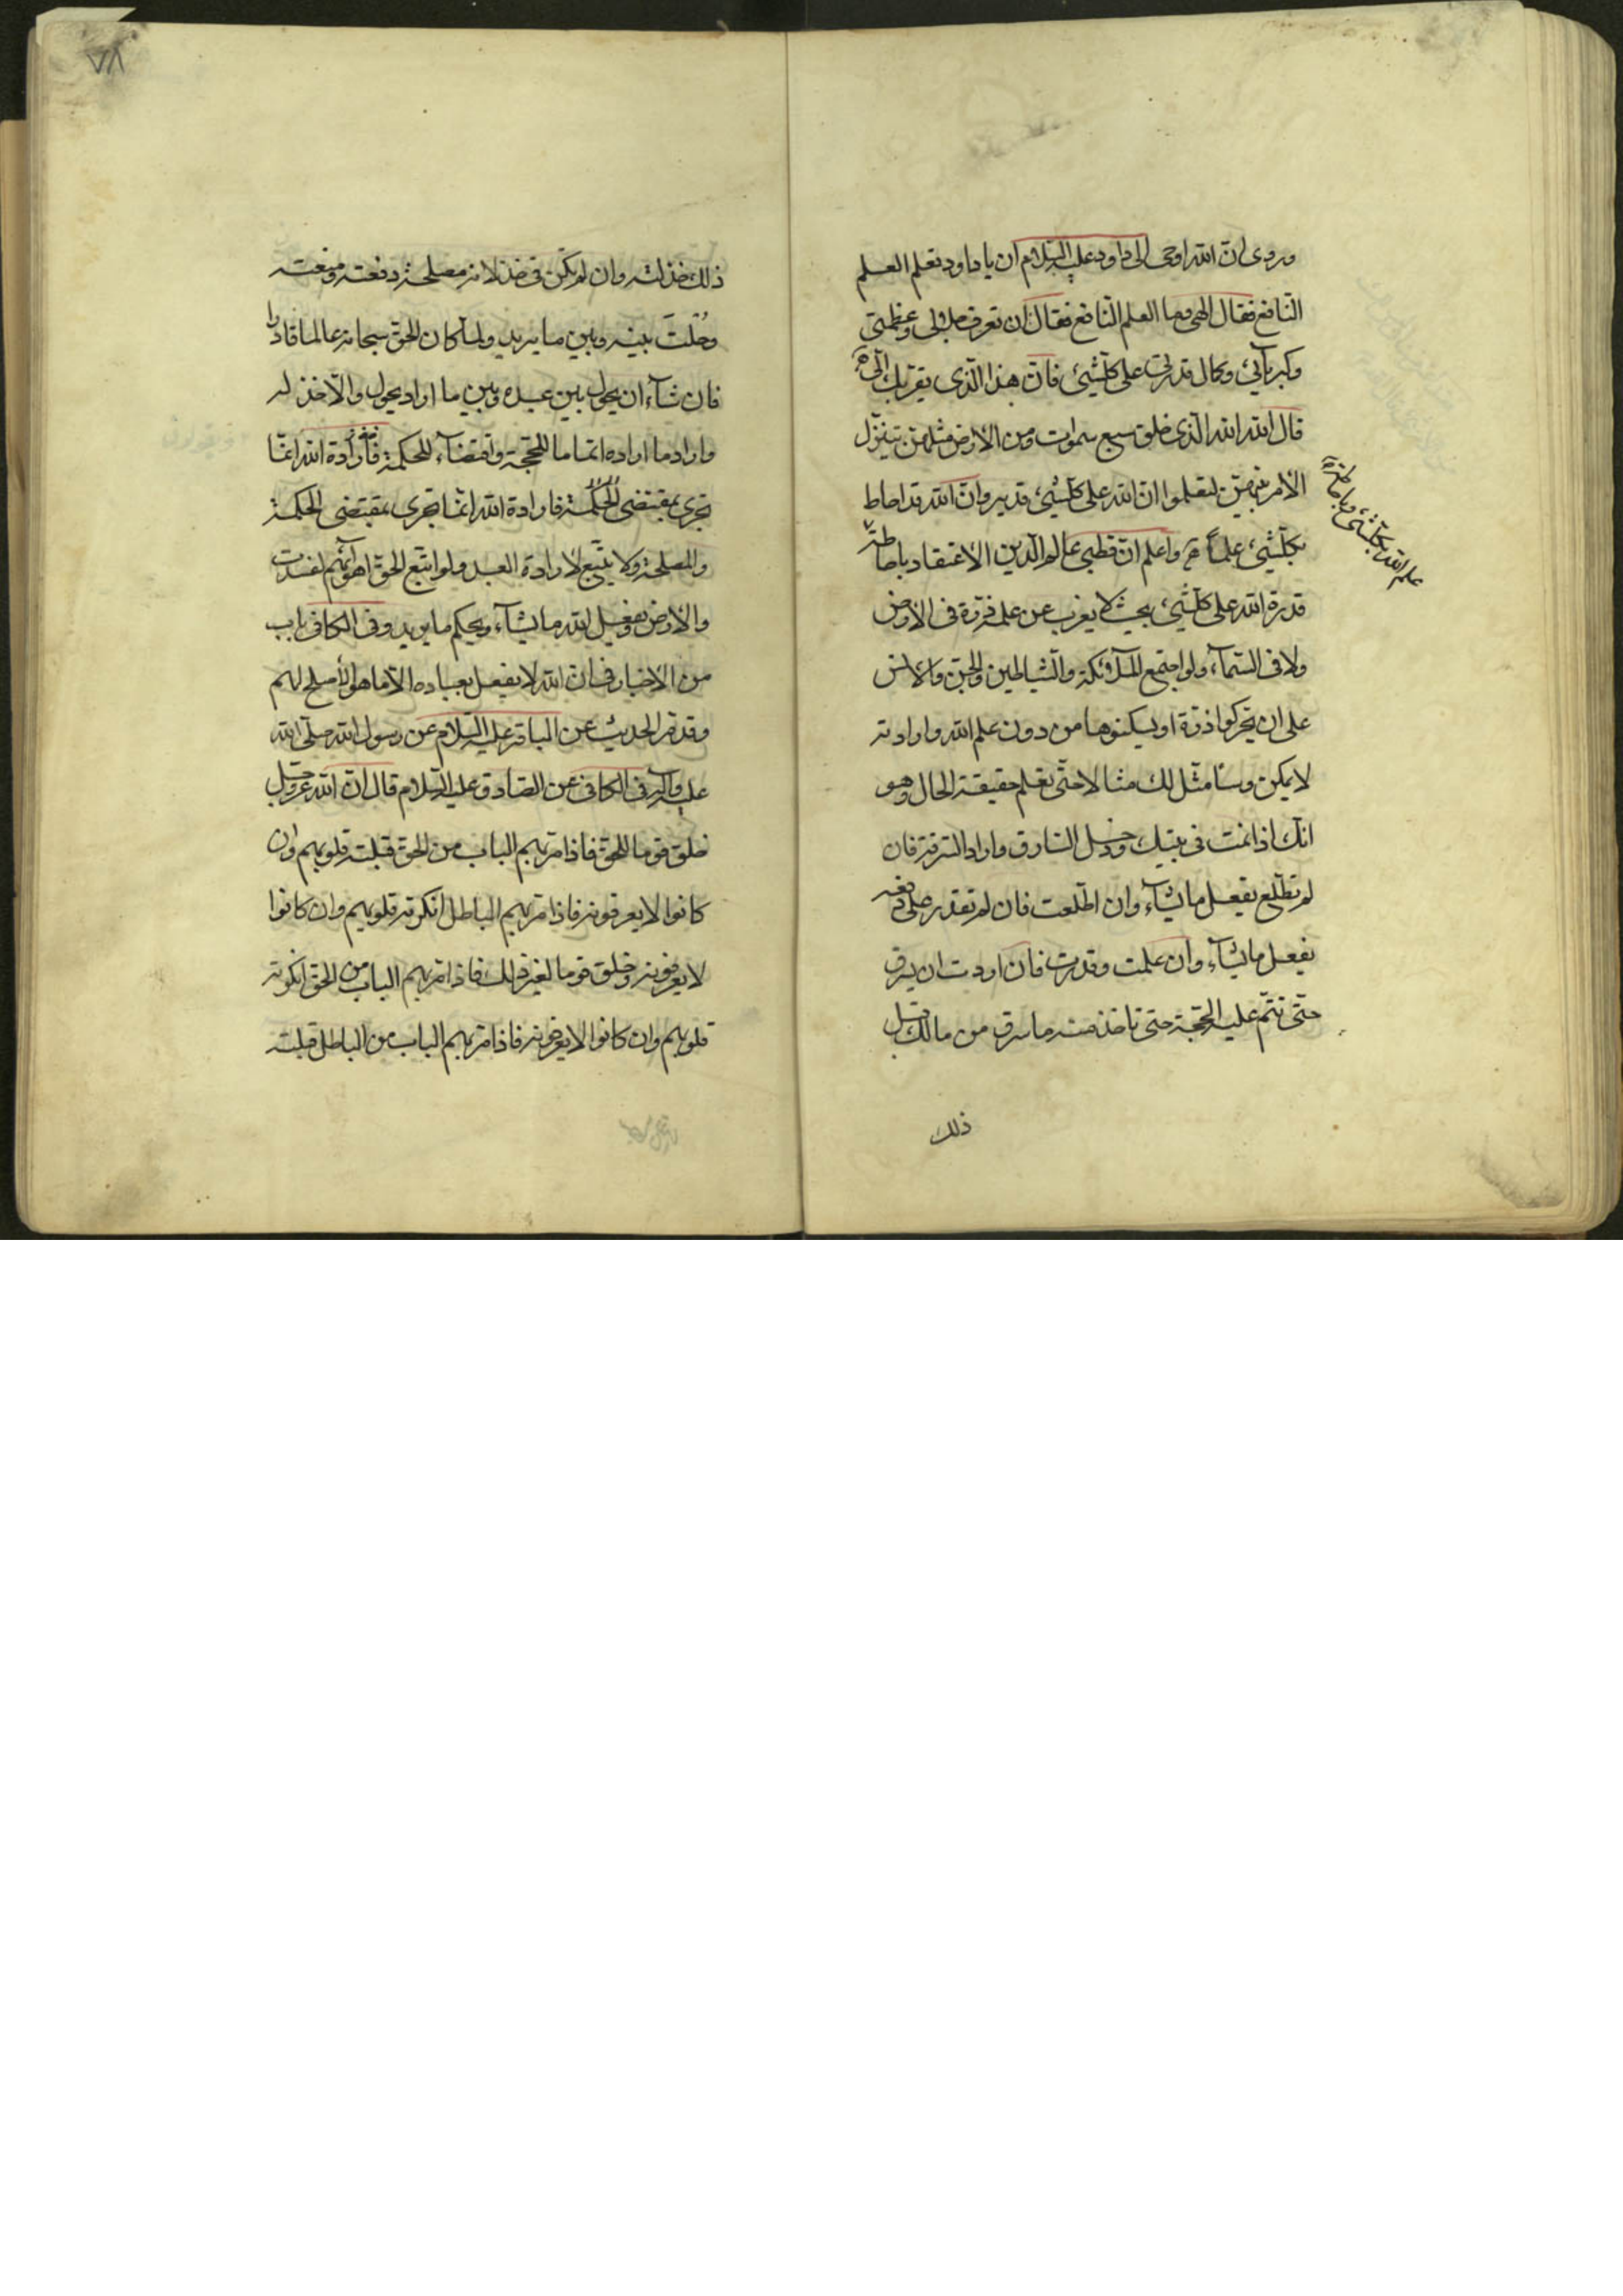 وروی ان الله اوحی الی داود علیه السلام ان یا داود تعلم العلم
النافع فقال الهی وما العلم النافع فقال ان تعرف جلالی وعظمتی
وکبریآئی وکمال قدرتی علی کلشیئ فان هذا الذی یقربک الیّ
قال الله الله الذی خلق سبع سموات ومن الارض مثلهن یتنزل
الامر بینهن لتعلموا ان الله علی کلشیئ قدیر وان الله قد احاط
بکلشیئ علماً واعلم ان قطبی عالم الدین الاعتقاد باحاطة
علم الله بکلشیئ وباحاطة
قدرة الله علی کلشیئ بحیث لا یغرب عن علمه ذرة فی الارض
ولا فی السمآء ولو اجتمع الملآئکة والشیاطین والجن والانس
علی ان یحرکوا ذرة او یسکنوها من دون علم الله وارادته
لا یمکن وسامثل لک مثالا حتی تعلم حقیقة الحال وهو
انک اذا نمت فی بیتک ودخل السارق واراد السرقة فان
لم تطلع یفعل ما یشآء وان اطلعت فان لم تقدر علی دفعه
یفعل ما یشآء وان علمت وقدرت فان اردت ان یسرق
حتی تتم علیه الحجة حتی تاخذ منه ما سرق من مالک قبل
ذلک
٧٨
ذلک خذلته وان لم یکن فی خذلانه مصلحة دفعته ومنعته
وحُلتَ بینه وبین ما یرید ولما کان الحق سبحانه عالما قادرا
فان شآء ان یحول بین عبده وبین ما اراد یحول والا خذله
واراد ما اراده اتماما للحجة واقتضآء للحکمة فارادة الله انما
تجری بمقتضی الحکمة فارادة الله انما تجری بمقتضی الحکمة
والمصلحة ولا یتبع لارادة العبد ولو اتبع الحق اهوآئهم لفسدت
والارض ویفعل الله ما یشآء ویحکم ما یرید وفی الکافی باب
من الاخبار فی ان الله لا یفعل بعباده الا ما هو الاصلح لهم
وقد مر الحدیث عن الباقر علیه السلام عن رسول الله صلی الله
علیه وآله وفی الکافی عن الصادق علیه السلام قال ان الله عز وجل
خلق قوما للحق فاذا مر بهم الباب من الحق قبلته قلوبهم وان
کانوا لا یعرفونه فاذا مر بهم الباطل انکرته قلوبهم وان کانوا
لا یعرفونه وخلق قوما لغیر ذلک فاذا مر بهم الباب من الحق انکرته
قلوبهم وان کانوا لا یعرفونه فاذا مر بهم الباب من الباطل قبلته